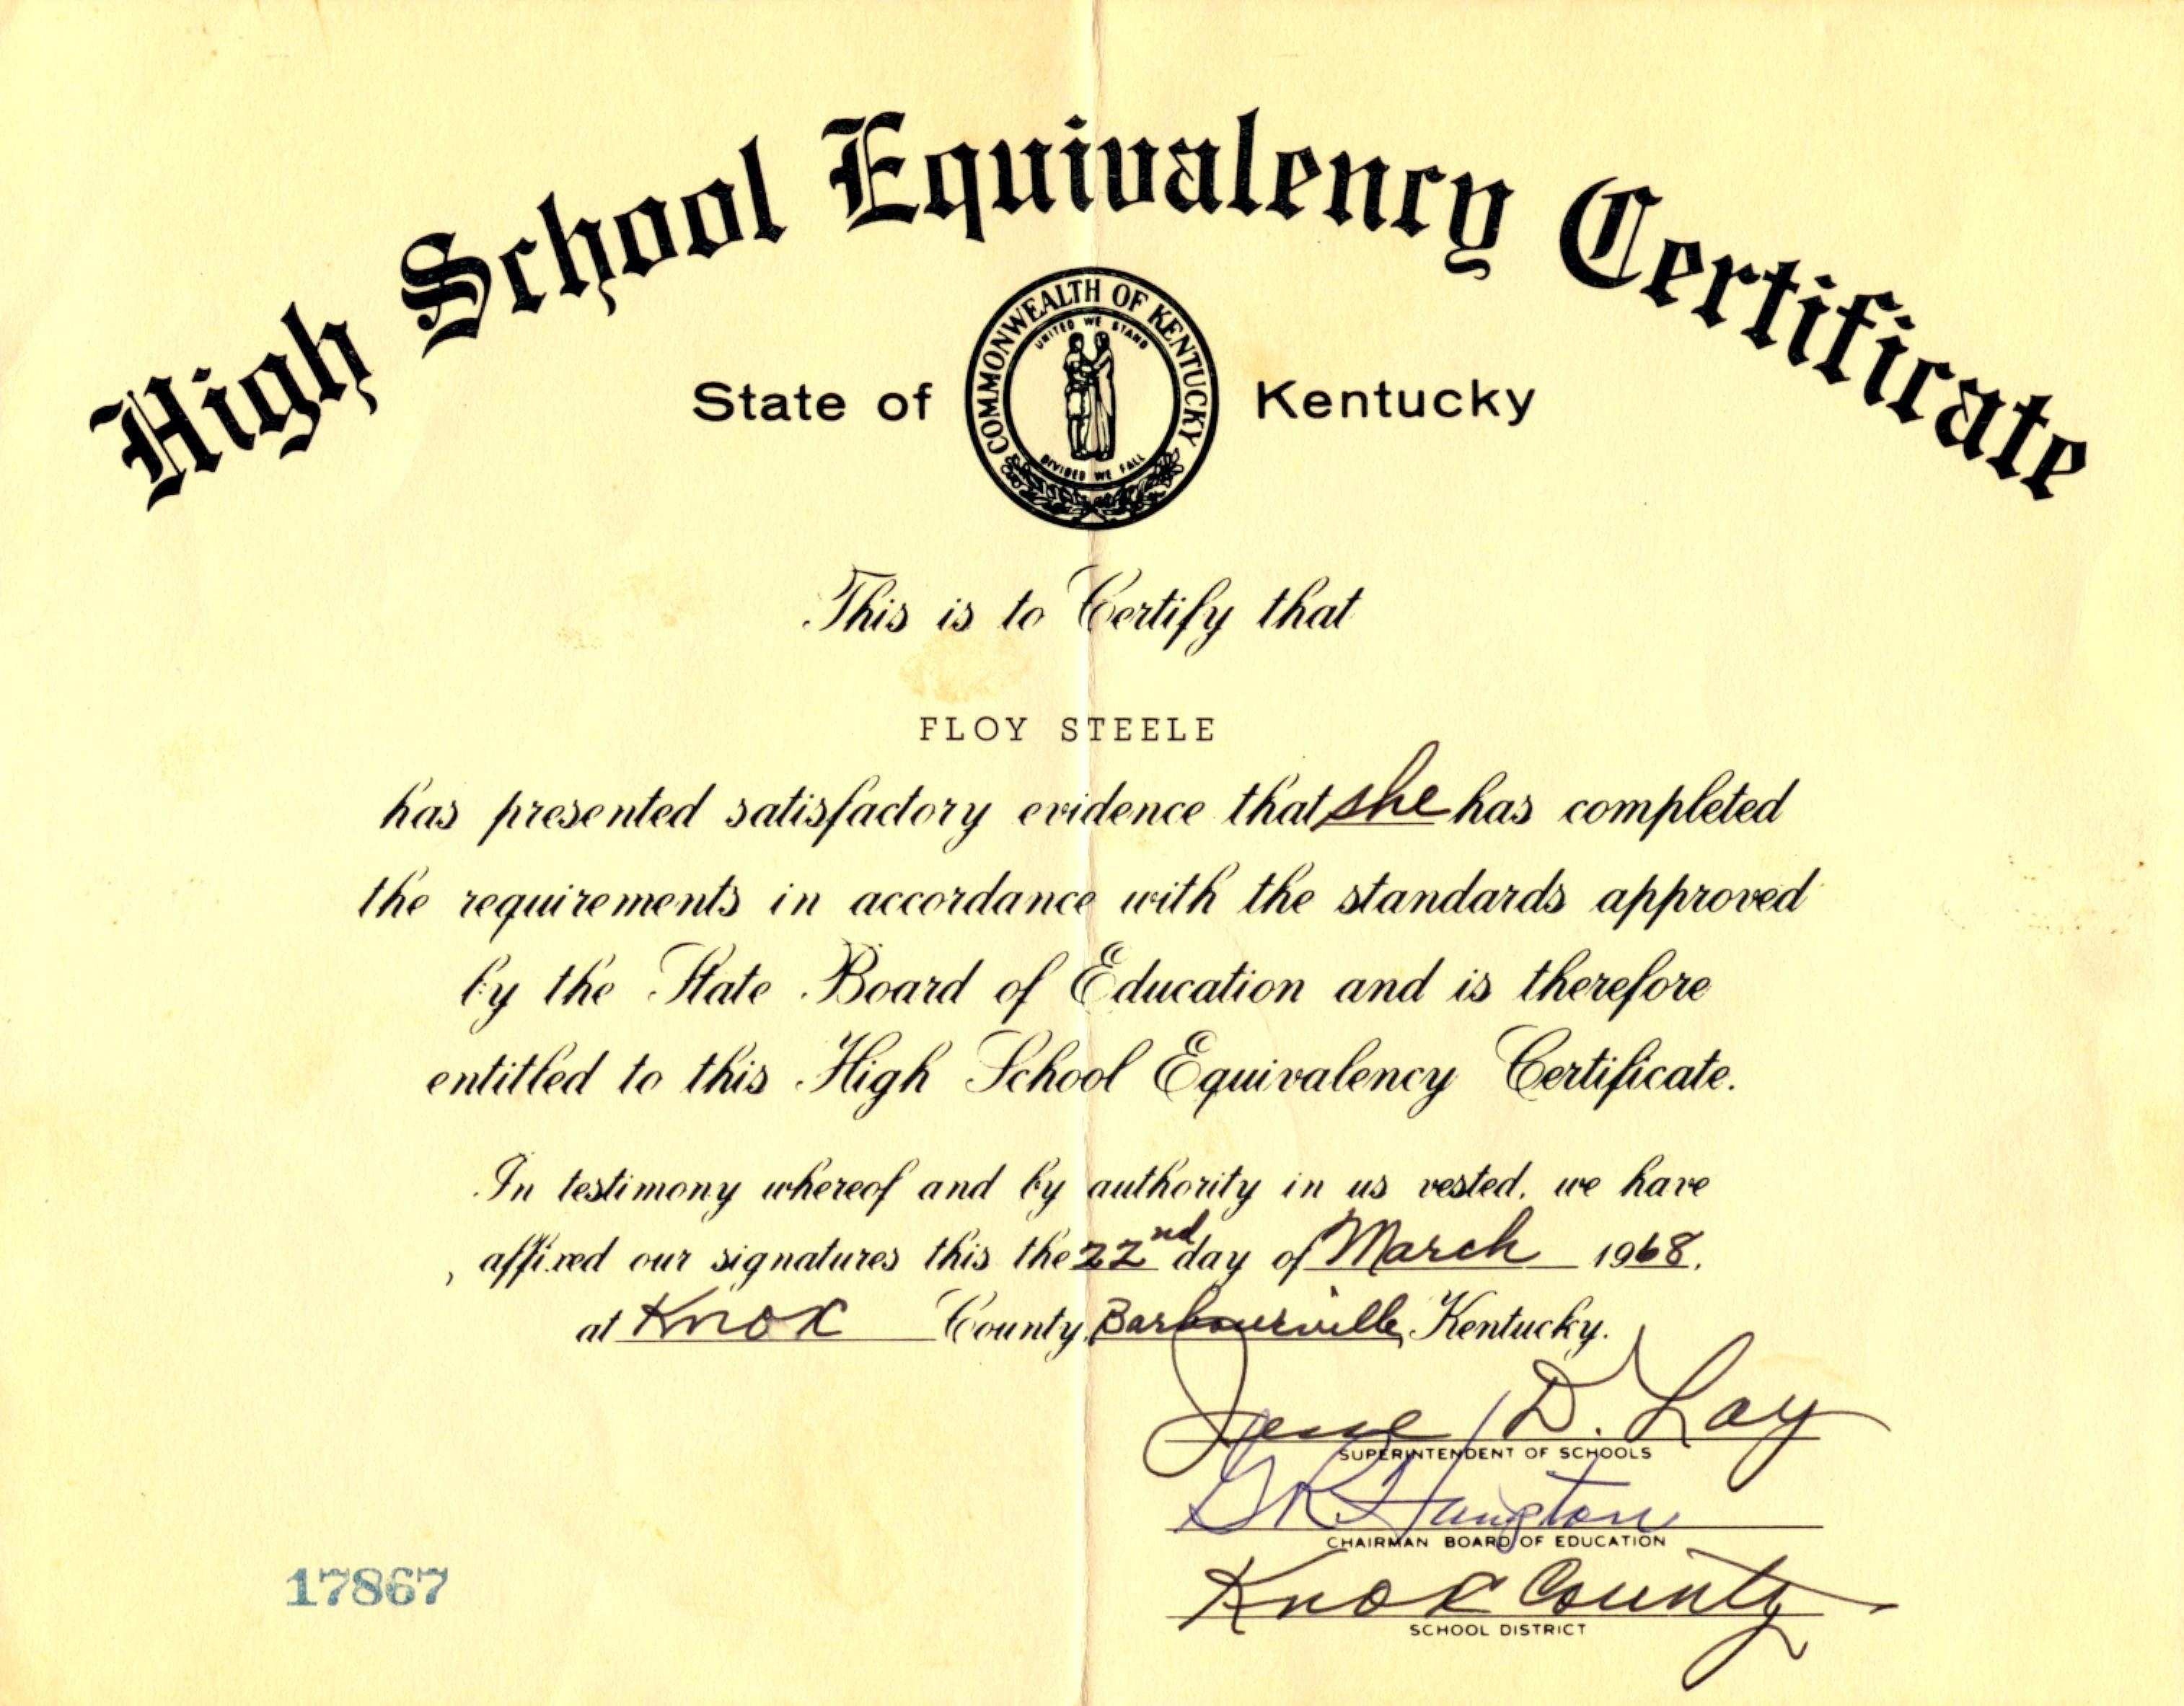 High School Equivalency Certificate
COMMONWEALTH OF KENTUCKY
UNITED WE STAND
State of Kentucky
DIVIDED WE FALL
This is to Certify that
FLOY STEELE
has presented satisfactory evidence that she has completed
the requirements in accordance with the standards approved
by the State Board of Education and is therefore
entitled to this High School Equivalency Certificate.
In testimony whereof and by authority in us vested, we have
affixed our signatures this the 22nd day of March 1968.
at Knox County, Barbourville, Kentucky.
Jesse D. Lay
SUPERINTENDENT OF SCHOOLS
CHAIRMAN BOARD OF EDUCATION
Knox County
SCHOOL DISTRICT
17867